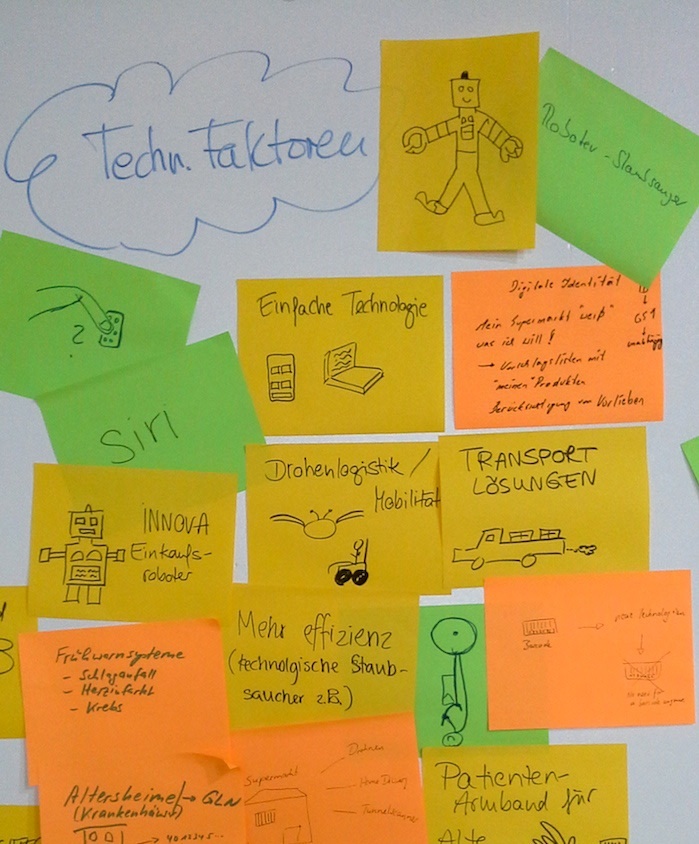 Techn. Faktoren
Roboter-Staubsauger
?
Siri
Einfache Technologie
Digitale Identität
Mein Supermarkt "weiß"
was ich will!
→ Vorschlagslisten mit
"meinen" Produkten
von Vorlieben
GS1
INNOVA
Einkaufs-
roboter
Drohenlogistik /
Mobilität
TRANSPORT
LÖSUNGEN
Frühwarnsysteme
- Schlaganfall
- Herzinfarkt
- Krebs
Mehr effizienz
(technolgische Staub-
saucher z.B.)
Barcode
neue Technologien
Altersheime → GLN
(Krankenhäuser)
→ 4012345...
Supermarkt
Drohnen
Patienten-
Armband für
Alte